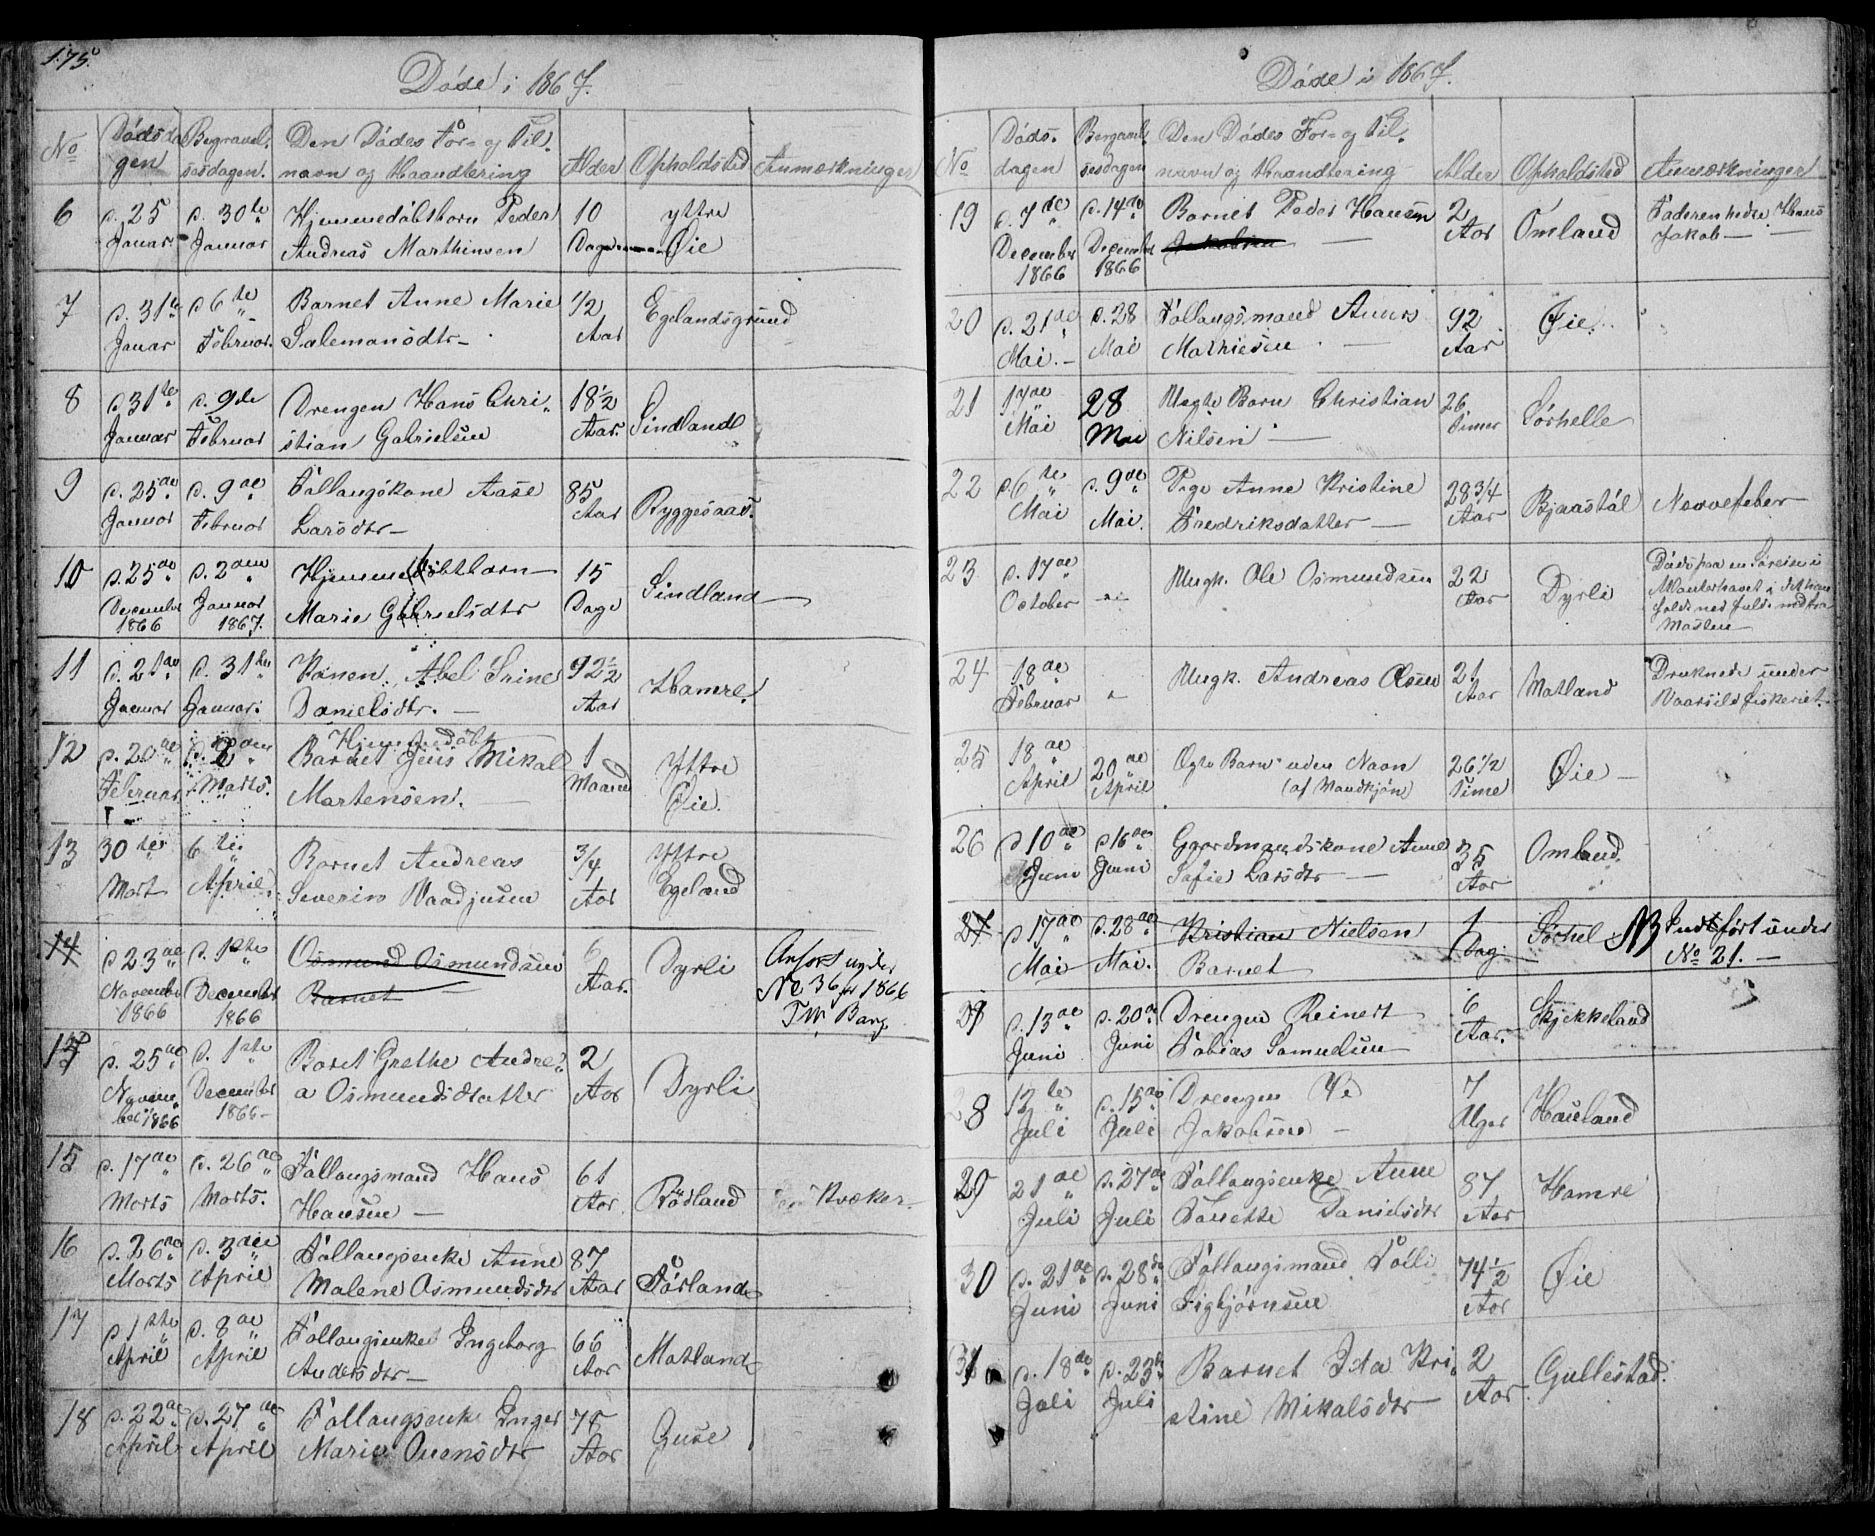 175.
Døde i 1867.
No
Døds da
gen
Begravel.
sesdagen.
Den Dødes For- og Til.
navn og Haandtering
Alder
Opholdsted
Anmærkninger
6
d. 25
Januar
d. 30te
Januar
Hjemmedøbtbarn Peder
Andreas Marthinsen
10
Dage
yttre
Øie
7
d. 31te
Januar
d. 6te
Februar.
Barnet Anne Marie
Salemonsdtr
1/2
Aar
Egelandsgrund
8
d. 31te
Januar
d. 9de
Februar
Drengen Hans Chri-
stian Gabrielsen
18 1/2
Aar.
Sindland
9
d. 25de
Januar
d. 9de
Februar
Follaugskone Aase
Larsdtr
85
Aar
Ryggesaas.
10
d. 25de
December
1866
d. 2den
Januar
1867.
Hjemmedøbtbarn
Marie Gabrielsdtr
15
Dage
Sindland
11
d. 21de
Januar
d. 31te
Januar.
Konen Abel Trine
Danielsdtr.
92 1/2
Aar
Hamre
12
d. 20de
Februar
d. 2den
Marts.
Hjemmedøbt
Barnet Jens Mikal
Martensen.
1
Maaned
Yttre
Øie.
13
30te
Mart
6te
April
Barnet Andreas
Severin
3/4
Aar
Yttre
Egeland
14
d 23de
November
1866
d. 1ste
December
1866
Osmund Osmundsen
Barnet
6
Aar.
Dyrli
Anført under
No 36 for 1866
13
d. 25de
Novem-
ber 1866
d. 1ste
December
1866
Baret Grethe Andre-
a Osmundsdatter
2
Aar
Dyrli
15
d. 17de
Marts
d. 26de
Marts.
Follaugsmand Hans
Hansen
61
Aar.
Rødland
Kvæker
16
d. 26de
Marts
d. 3die
April
Follaugsenke Anne
Malene Osmundsdtr
87
Aar
Førland
17
d 1ste
April
d. 8de
April
Follaugsenke Ingeborg
Andersdtr
66
Aar
Matland
18
d. 22de
April
d. 27de
April
Follaugsenke Inger
Marie Ouensdtr
78
Aar
Guse
Døde i 1867.
No
Døds-
dagen
Begravel.
sesdagen
Den Dødes For- og Til.
navn og Haandtering
Alder
Opholdsted
Anmærkninger
19
d. 7de
December
1866
d. 14de
December
1866
Barnet Peder Hansen
Jakobsen
2
Aar
Omland
Faderen hedte Hans
Jakob
20
d. 21de
Mai.
d. 28
Mai
Follaugsmand Anners
Mathiesen
92
Aar
Øie.
21
17de
Mai
28
Mai
Uegte Barn Christian
Nilsen
26
Timer
Sørhelle
22
d 6te
Mai
d. 9de
Mai.
Pige Anne Kristine
Fredriksdatter
28 3/4
Aar
Bjaastøl
Nervefeber
23
d. 17de
October
Ungk. Ole Osmundsen
22
Aar
Dyrli
Døde paa en Søreise i
det han
faldt ned fra
Masten
24
18de
Februar
Ungk. Andreas Olsen
21
Aar
Matland
Druknede under
Vaarsildfiskeriet.
25
18de
April
20de
April
Ægte Barn uden Navn
(af Mandkjøn)
26 1/2
Time
Øie
26
d 10de
Juni
d 16de
Juni
Gaardmandskone Anne
Sofie Larsdtr
35
Aar
Omland.
27
d 17de
Mai
d. 28de
Mai.
Kristian Nielsen
Barnet
1
Dag
Sørhel
NB Indført under
No 21.
d. 13de
Juni
d. 20de
Juni
Drengen Reinert
Tobias Samuelsen
6
Aar.
Skjekkeland
28
12te
Juli
d. 15de
Juli
Drengen
Jakobsen
7
Uger
Hauland
29
21de
Juli
d. 27de
Juli
Follaugsenke Anne
Tonette Danielsdtr
87
Aar
Hamre
30
d. 21de
Juni
d. 28de
Juni
Follaugsmand Tolli
Sigbjørnsen
74 1/2
Aar
Øie
31
d. 18de
Juli
d. 23de
Juli
Barnet Ida Kri-
stine Mikalsdtr
2
Aar.
Gullestad.